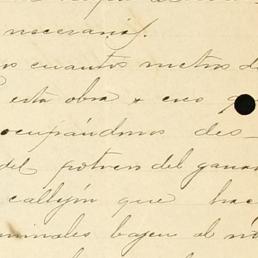 necesario.
os cuantos metros d
esta obra & creo q
ocupándonos des-
del potrero del gana
callejón que hac
animales bajen al río